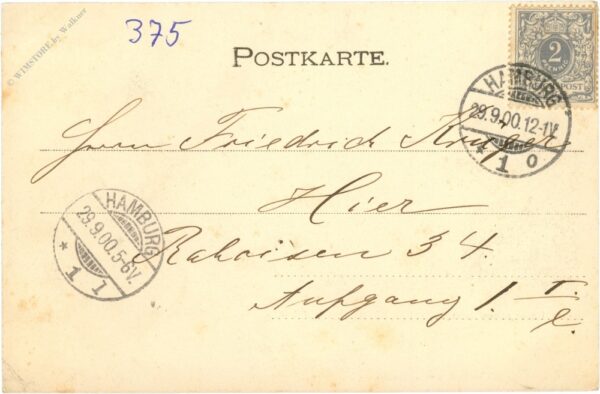 © WIMSTORE by Walkner
375
POSTKARTE.
2
PFENNIG
POST
HAMBURG
29.9.00.12-1V.
* 1 o
Herrn Friedrich Krüger
Hier
Raboisen 34.
Aufgang 1. I. l.
HAMBURG
29.9.00.5-6V.
* 1 1